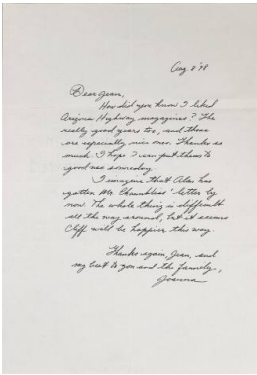 Aug 8 '98
Dear Jean,
How did you know I liked
Arizona Highway magazines? The
really good years too, and these
are especially nice ones. Thanks so
much. I hope I can put them to
good use someday.
I imagine that Alex has
gotten Mr. 's letter by
now. The whole thing is difficult
all the way around, but it seems
Cliff will be happier this way.
Thanks again, Jean, and
my best to you and the family,
Joanna